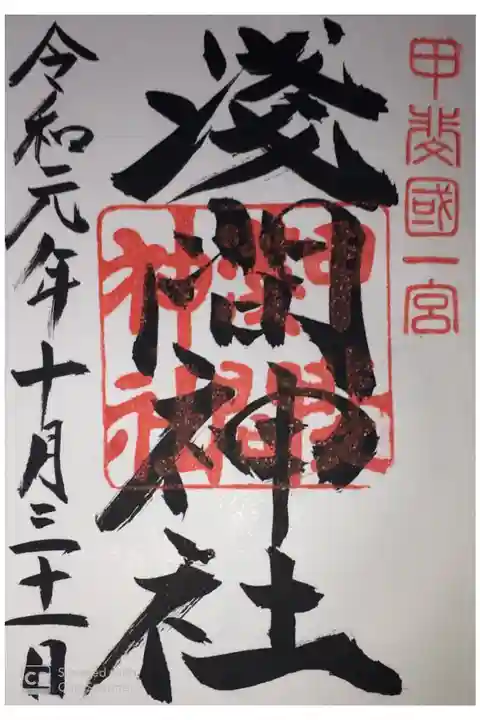 甲斐國一宮
淺間神社
令和元年十月三十一日
CS
Scanned with
CamScanner